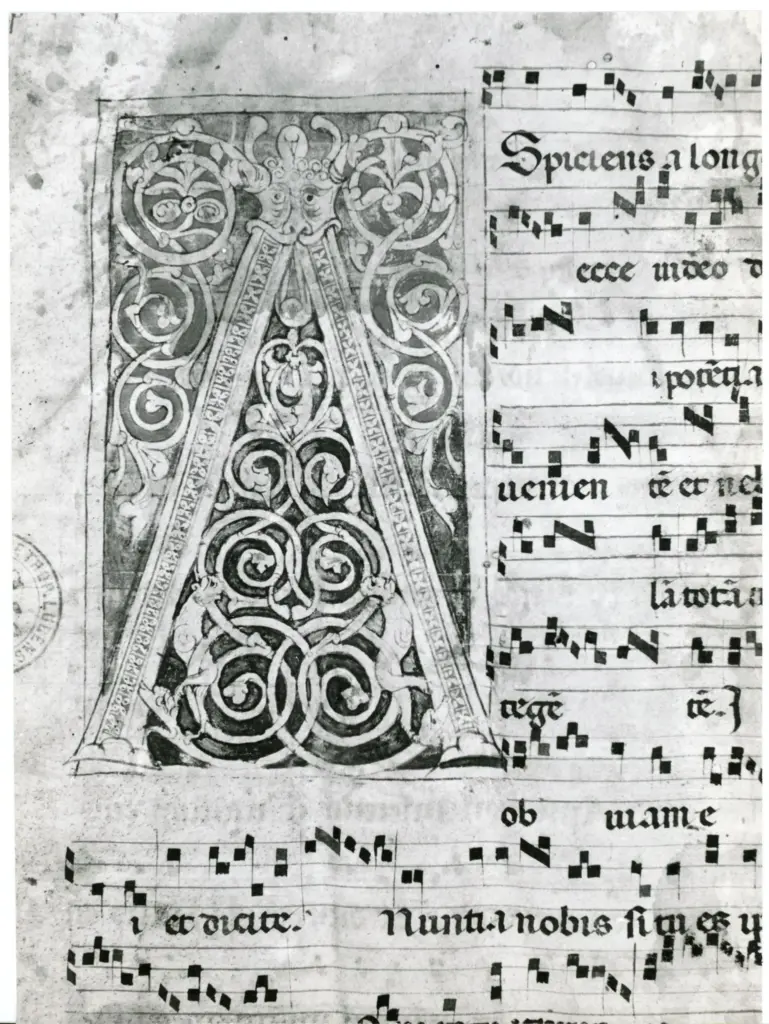 A
Spiciens a long
ecce uideo d
ipotẽtia
uenien tẽ et neb
lã totã
tegẽ tẽ. I
ob uiam e
i et dicite. Nunti a nobis si tu es ip